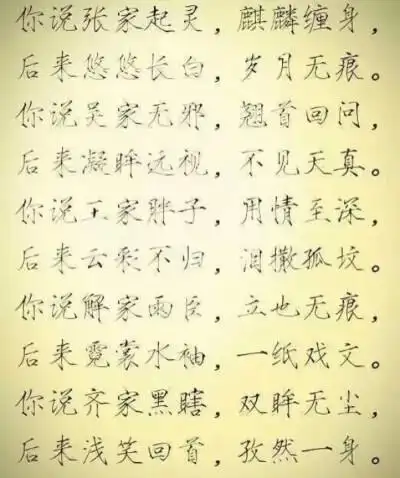 你说张家起灵，麒麟缠身，
后来悠悠长白，岁月无痕。
你说吴家无邪，翘首回问，
后来凝眸远视，不见天真。
你说王家胖子，用情至深，
后来云彩不归，泪撒孤坟。
你说解家雨臣，立也无痕，
后来霓裳水袖，一纸戏文。
你说齐家黑瞎，双眸无尘，
后来浅笑回首，孜然一身。